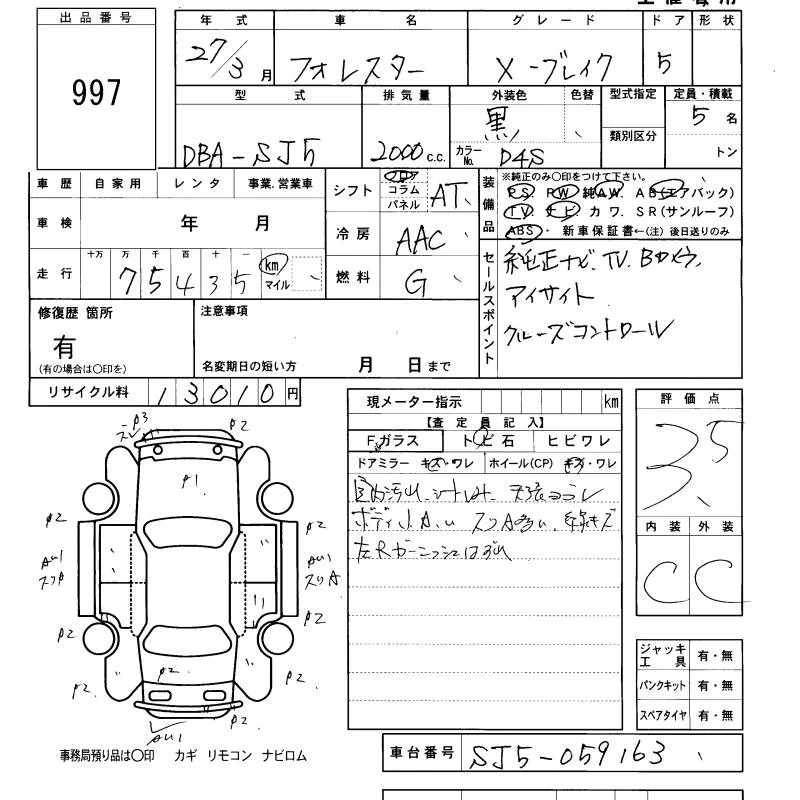 出品番号
997
年式 車名 グレード ドア 形状
27/3月 フォレスター X-ブレイク 5
型式 排気量 外装色 色替 型式指定 定員・積載
DBA-SJ5 2000c.c. 黒 5名
カラーNo. D4S 類別区分 トン
車歴 自家用 レンタ 事業.営業車
シフト フロア コラム パネル AT
装備品
※純正のみ○印をつけて下さい。
PS. PW 純AW. AB(エアバック)
TV. ナビ カワ. SR(サンルーフ)
ABS・ 新車保証書←(注)後日送りのみ
車検 年 月
冷房 AAC
走行 十万 万 千 百 十 一
75435 km マイル
燃料 G
セールスポイント
純正ナビ、TV、Bカメラ
アイサイト
クルーズコントロール
修復歴 箇所
有
(有の場合は○印を)
注意事項
名変期日の短い方 月 日まで
リサイクル料 13010円
現メーター指示 km
【査定員記入】
F.ガラス トビ石 ヒビワレ
ドアミラー キズ・ワレ ホイール(CP) キズ・ワレ
ボディ小A.U スリA多い、線キズ
左Rガーニッシュはずれ
評価点
3.5
内装 外装
C C
ジャッキ工具 有・無
パンクキット 有・無
スペアタイヤ 有・無
P3
スレ
P2
P1
P2
P2
AU1
スリA
AU1
スリA
P2
P2
P2
P2
P2
P2
AU1
事務局預り品は○印 カギ リモコン ナビロム
車台番号 SJ5-059163